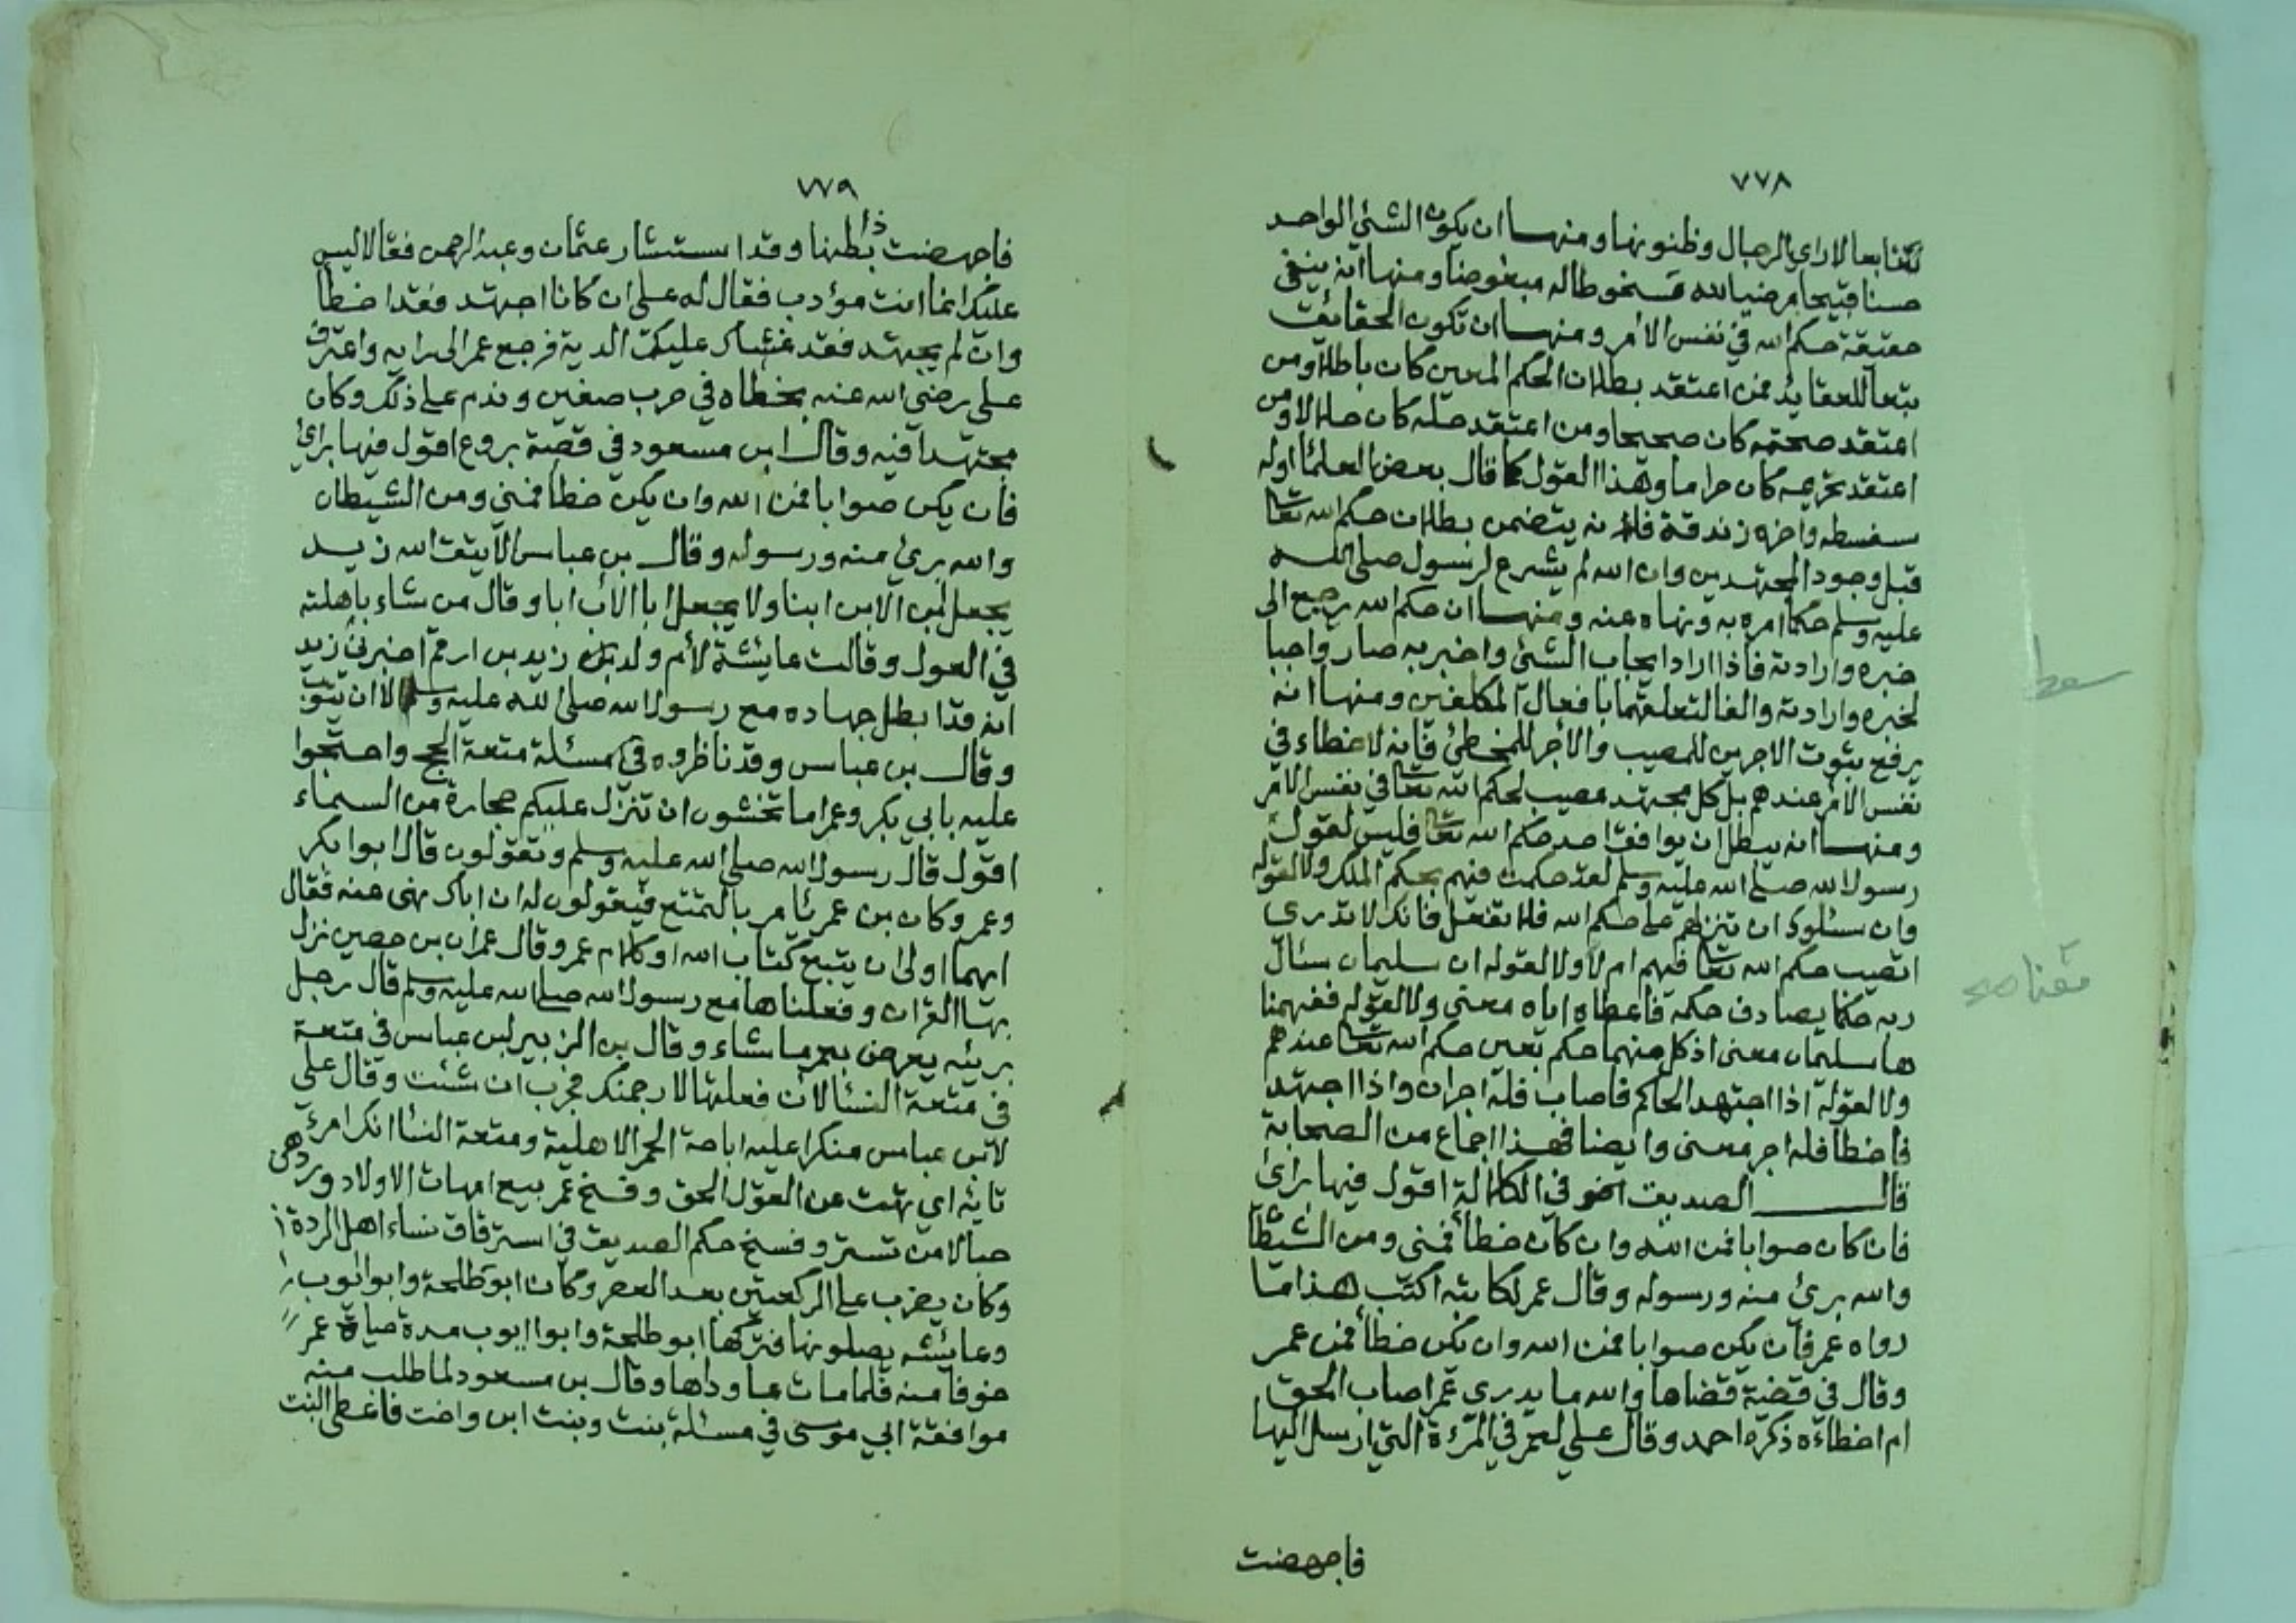 ٧٧٨
تابعا لاراي الرجال وظنونها ومنها ان يكون الشئ الواحد
حسنا قبيحا مرضيا لله مسخوطا له مبغوضا ومنها انه ينفي
حقيقة حكم الله في نفس الامر ومنها ان تكون الحقائق
تبعا للعقايد فمن اعتقد بطلان الحكم المعين كان باطلا ومن
اعتقد صحته كان صحيحا ومن اعتقد حله كان حلالا ومن
اعتقد تحريمه كان حراما وهذا القول كما قال بعض العلماء اوله
سفسطه واخره زندقة فانه يتضمن بطلان حكم الله تعا
قبل وجود المجتهدين وان الله لم يشرع لرسول صلى الله
عليه وسلم حكما امره به ونهاه عنه ومنها ان حكم الله يرجع الى
خبره وارادته فاذا اراد ايجاب الشئ واخبر به صار واجبا
لخبره وارادته والغا لتعلقهما بافعال المكلفين ومنها انه
يرفع ثبوت الاجرين للمصيب والأجر للمخطئ فانه لا خطاء في
نفس الامر عندهم بل كل مجتهد مصيب لحكم الله تعا في نفس الامر
ومنها انه يبطل ان يوافق احد حكم الله تعا فليس لقول
رسول الله صلى الله عليه وسلم لقد حكمت فيهم بحكم الملك ولا لقوله
وان سئلوك ان تنزلهم على حكم الله فلا تفعل فانك لا تدري
اتصيب حكم الله تعا فيهم ام لا ولا لقوله ان سليمان سئال
ربه حكما يصادف حكمه فاعطاه اياه معنى ولا لقوله ففهمنا
ها سليمان معنى اذ كل منهما حكم بعين حكم الله تعا عندهم
ولا لقوله اذا اجتهد الحاكم فاصاب فله اجران واذا اجتهد
فاخطا فله اجر معنى وايضا فهذا اجماع من الصحابة
قال الصديق في الكلالة اقول فيها براي
فان كان صوابا فمن الله وان كان خطأ فمني ومن الشيطا
والله برئ منه ورسوله وقال عمر لكاتبه اكتب هذا ما
رواه عمر فان يكن صوابا فمن الله وان يكن خطأ فمن عمر
وقال في قضية قضاها والله ما يدري عمر اصاب الحق
ام اخطاءه ذكره احمد وقال علي لعمر في المرءة التي ارسل اليها
فاجهضت
٧٧٩
فاجهضت ذا بطنها وقد استشار عثمان وعبد الرحمن فقالا ليس
عليك انما انت مؤدب فقال له علي ان كانا اجتهد فقد اخطأ
وان لم يجتهد فقد غشاك عليك الدية فرجع عمر الى رايه واعترف
علي رضي الله عنه بخطاه في حرب صفين وندم على ذلك وكان
مجتهدا فيه وقال ابن مسعود في قصة بروع اقول فيها براي
فان يكن صوابا فمن الله وان يكن خطأ فمني ومن الشيطان
والله برئ منه ورسوله وقال بن عباس الا يتق الله زيد
يجعل ابن الابن ابنا ولا يجعل ابا الأب ابا وقال من شاء باهلته
في العول وقالت عايشة لأم ولد زيد بن ارقم اخبرن زيد
انه قد ابطل جهاده مع رسول الله صلى الله عليه وسلم الا ان يتوب
وقال بن عباس وقد ناظروه في مسئلة متعة الحج واحتجوا
عليه بابي بكر وعمر اما تخشون ان تنزل عليكم حجارة من السماء
اقول قال رسول الله صلى الله عليه وسلم وتقولون قال ابوا بكر
وعمر وكان بن عمر يئامر بالتمتع فيقولون له ان اباك نهى عنه فقال
ايهما اولى ان يتبع كتاب الله او كلام عمر وقال عمران بن حصين نزل
بها القران وفعلناها مع رسول الله صلى الله عليه وسلم قال رجل
بريئه يعرض بعمر ما شاء وقال بن الزبير لبن عباس في متعة
في متعة النسئا لان فعلتها لارجمنك فجرب ان شئت وقال علي
لابن عباس منكرا عليه اباحة الحمر الاهلية ومتعة النسا انك امرئ
تايه اي تهت عن القول الحق وفسخ عمر بيع امهات الاولاد وردهن
حبالا من تستر وفسخ حكم الصديق في استرقاق نساء اهل الردة
وكان يضرب على الركعتين بعد العصر وكان ابو طلحة وابو ايوب
وعائيشه يصلونها فتركها ابو طلحة وابو ايوب مدة حياة عمر
خوفا منه فلما مات عاوداها وقال بن مسعود لما طلب منه
موافقة ابي موسى في مسئلة بنت وبنت ابن واخت فاعطى البنت